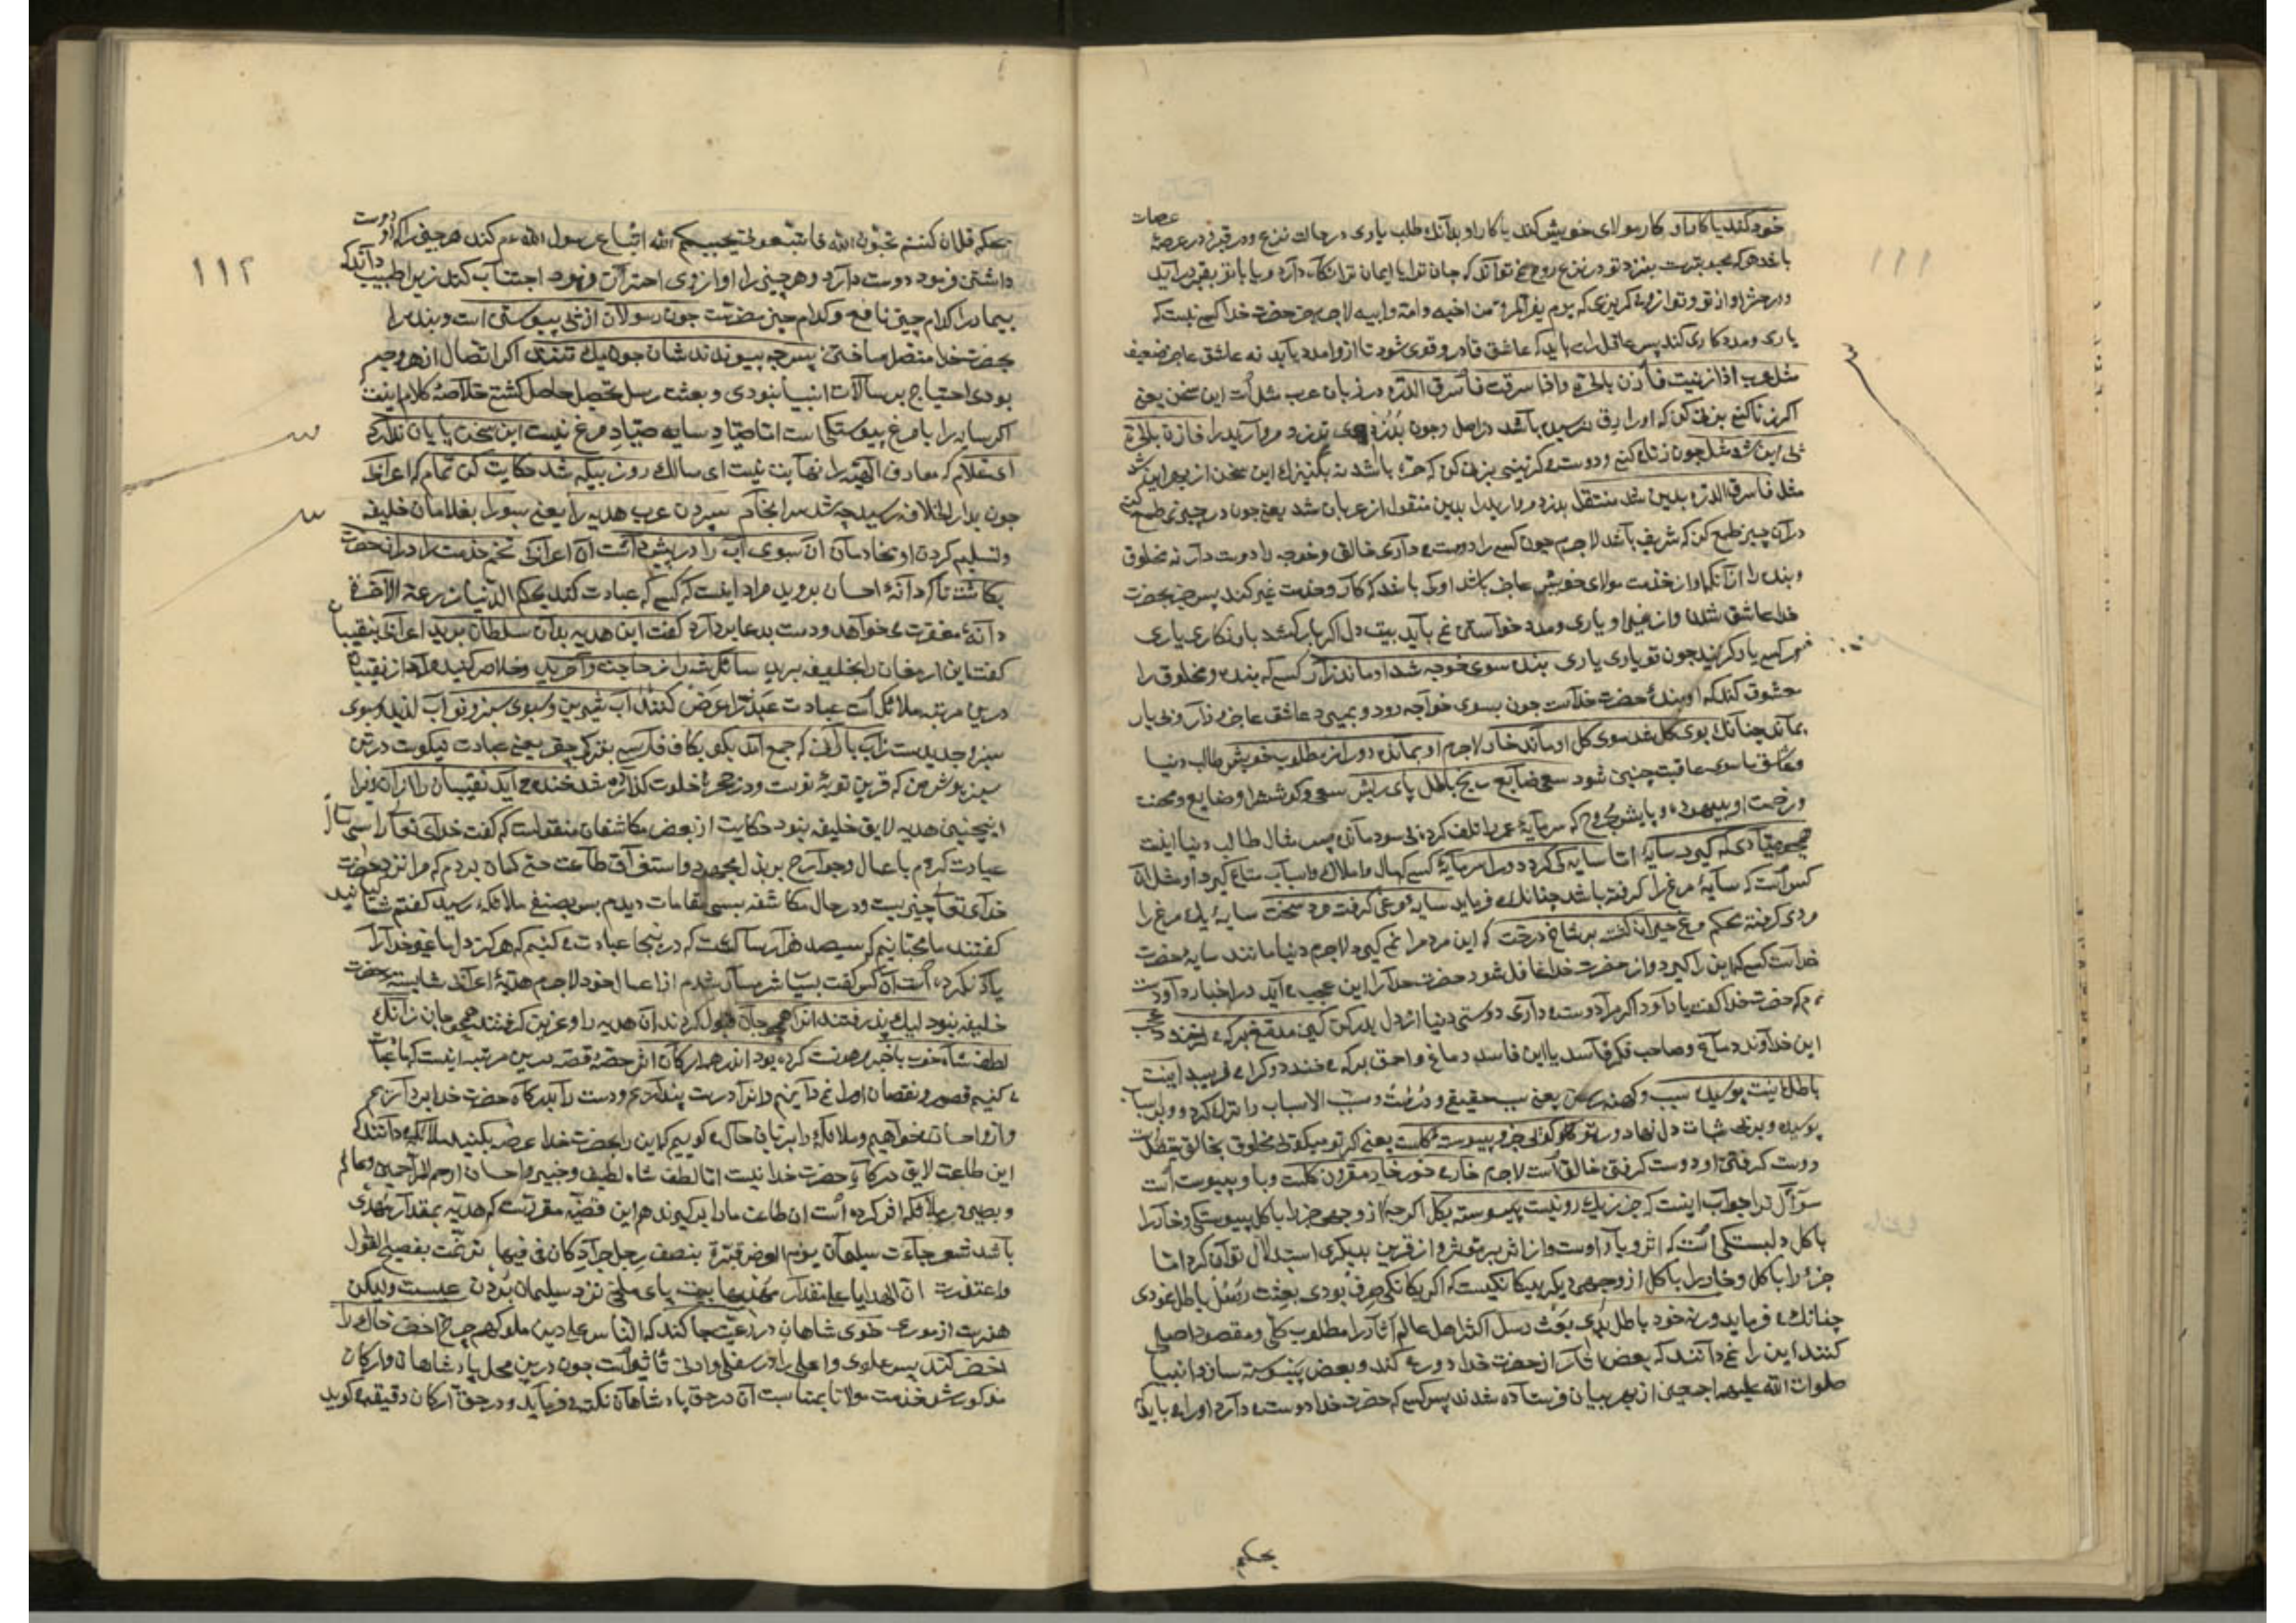 ۱۱۱
عصات
خود کند یا کار او کار مولای خویش کند یا کار او بدآنک طلب یاری در حالت نزع و در قبر و در عرصهٔ
باشد هرکه بجد بترت بنزد تو در نزع روح نتواند که جان ترا با ایمان
و در حشر او از تو و تو از وی گریزی که یوم یفر المرء من اخیه و امه و ابیه لاجرم جز حضرت خدا کسی نیست که
یاری و مددکاری کند پس عاقل را باید که عاشق قادر و قوی شود تا از او مدد یابد نه عاشق عاجز ضعیف
مثل عرب اذا زنیت فأزن بالحرة و اذا سرقت فأسرق الدرة در زبان عرب مثل است این سخن یعنی
اکر زنا کنی بزنی کن که او را رقی نرسیده باشد در اصل و چون بدزدی بدزد مروارید را فازن بالحرة
پی این شد مثل چون زنا کنی و دوست گزینی بزنی کن که حره باشد نه بکنیزک این سخن از بهر این شد
مثل فاسرق الدرة بدین شد منتقل بدزد مروارید را بدین منقول از عربان شد یعنی چون در چیزی طمع کنی
در آن چیز طمع کن که شریف باشد لاجرم چون کسی را دوست می داری خالق و خوجه را دوست دار نه مخلوق
و بنده را از آنک او از خدمت مولای خویش عاجز باشد او کی باشد که کار و خدمت غیر کند پس جز بحضرت
خدا عاشق شدن و از غیر او یاری و مدد خواستن نمی باید بیت دل اکر بار کشد بار نکاری باری
هر کسی یار گزیند چون تو یاری باری بنده سوی خوجه شد او ماند زار کسی که بنده و مخلوق را
معشوق کند که او بندهٔ حضرت خداست چون بسوی خواجه رود و بمیرد عاشق عاجز و زار و بی یار
بماند چنانک بوی کل شد سوی کل او ماند خار لاجرم او بمانده دور از مطلوب خویش طالب دنیا
و عاشق ماسوی عاقبت چنین شود سعی ضایع رنج باطل پای ریش سعی و کوشش او ضایع و محنت
و زحمت او بیهوده و پایش مجروح که سرمایهٔ عمر را تلف کرده بی سود مانده پس مثال طالب دنیا اینست
همچو صیادی که گیرد سایهٔ اما سایه کی گردد ورا سرمایهٔ کسی که مال و املاک و اسباب متاع گیرد او مثل آن
کس است که سایهٔ مرغ را گرفته باشد چنانک می فرماید سایهٔ مرغی گرفته مرد سخت سایهٔ یک مرغ را
مردی گرفته محکم مرغ حیران گشته بر شاخ درخت که این مرد مرا نمی گیرد لاجرم دنیا مانند سایهٔ حضرت
خداست کسی که این را گیرد و از حضرت خدا غافل شود حضرت خدا را این عجب می آید در اخبار داود است
م که حضرت خدا گفت یا داود اکر مرا دوست می داری دوستی دنیا از دل بدر کن کین مدمغ بر که می خندد عجب
این خداوند دماغ و صاحب فکر فاسد یا این فاسد دماغ و احمق بر که می خندد و کرا می فریبد اینت
باطل اینت پوسیده سبب و کهنه رسن یعنی سبب حقیقی و درست و مسبب الاسباب را ترک کرده و بر اسباب
پوسیده و بی ثبات دل نهاد ور تو گوئی جزو پیوسته کلست یعنی اکر تو میگوئی مخلوق بخالق متصل است
دوست گرفتن او دوست گرفتن خالق است لاجرم خار می خور خار مقرون گلست و با او پیوست است
سؤال ترا جواب اینست که جز ز یک رو نیست پیوسته بکل اکرچه از وجهی جز را با کل پیوستگی و خار را
با گل دلبستگی است که اثر و یار اوست و از اثر بر مؤثر و از قرین بدیگری استدلال توان کرد اما
جزؤ را با کل و خار را با گل از وجهی دیگر بیگانگیست که اکر یگانگی صرف بودی بعثت رسل باطل نمودی
چنانک می فرماید ور نه خود باطل بدی بعث رسل اکثر اهل عالم آثار را مطلوب کلی و مقصود اصلی
کنند این را نمی دانند که بعض آثار از حضرت خدا دور می کند و بعض پیوسته سازد انبیا
صلوات الله علیهم اجمعین از بهر بیان فرستاده شدند پس کسی که حضرت خدا دوست می دارد او را می باید که
بحکم
۱۱۲
بحکم قل ان کنتم تحبون الله فاتبعونی یحببکم الله اتباع رسول الله عم کند هر چیزی را که او دوست
داشتن فرمود دوست دارد و هر چیزی را او از وی احتراز فرمود اجتناب کند زیرا طبیب داند که
بیمار را کدام چیز نافع و کدام چیز مضرتست چون رسولان از پی پیوستن است و بنده را
بحضرت خدا متصل ساختن پس چه پیوندندشان چون یک تنند اکر اتصال از هر وجه
بودی احتیاج برسالات انبیا نبودی و بعثت رسل تحصیل حاصل گشتی خلاصهٔ کلام اینست
اکر سایه را با مرغ پیوستگی است اما صیاد سایه صیاد مرغ نیست این سخن پایان ندارد
ای غلام که معارف الهیه را نهایت نیست ای سالک روز بیگه شد حکایت کن تمام که اعرابی
چون بدار الخلافه رسید چه شد سرانجام سپردن عرب هدیه را یعنی سبو را بغلامان خلیفه
و تسلیم کردن او بخادمان آن سبوی آب را در پیش داشت آن اعرابی تخم خدمت را در آن حضرت
بکاشت تا که دانهٔ احسان بروید مراد اینست که کسی که عبادت کند بحکم الدنیا مزرعة الآخرة
دانهٔ مغفرت می خواهد و دست بدعا بردارد گفت این هدیه بدان سلطان برید اعرابی بنقیبان
گفت این ارمغان را بخلیفه برید سائل شه را ز حاجت واخرید و خلاص کنید مراد از نقیبان
درین مرتبه ملائکه است عبادت عبد را عرض کنند آب شیرین و سبوی سبز و نو آب لذیذ و سبوی
سبز و جدیدست ز آب بارانی که جمع آمد بگو بکاف فارسی بزرگ چقر یعنی عبادت نیکوست در تن
سبزپوش من که قرین توبهٔ نوبت و در حجرهٔ خلوت گذارده شد خنده می آید نقیبان را از آن زیرا
اینچنین هدیه لایق خلیفه نبود حکایت از بعض مکاشفان منقولست که گفت خدای تعالی را سی سال
عبادت کردم باعمال و جوارح ببذل مجهود و استفراق طاعت حتی گمان بردم که مرا نزد حضرت
خدای تعالی چیزیست و در حال مکاشفه بسی مقامات دیدم پس بصنفی ملائکه رسیدم گفتم شما کیانید
گفتند ما محبانیم که سیصد هزار سالست که درینجا عبادت می کنیم که هرگز دل ما غیر خدا را
یاد نکرده است آن کس گفت بسیار شرمسار شدم از اعمال خود لاجرم هدیهٔ اعراب شایستهٔ حضرت
خلیفه نبود لیک پذرفتند آنرا همچو جان قبول کردند آن هدیه را و عزیز گرفتند همچو جان زانک
لطف شاه خوب باخبر مروت کرده بود اندر همه ارکان اثر حصهٔ قصه درین مرتبه اینست که ما عبادت
می کنیم قصور و نقصان او را نمی دانیم و آنرا درست پنداریم و دست را بدرگاه حضرت خدا برداریم
و از او احسان خواهیم و ملائکه را بزبان حال می گوییم که این را بحضرت خدا عرضه بکنید ملائکه می دانند که
این طاعت لایق درگاه حضرت خدا نیست اما لطف شاه لطیف و خبیر و احسان ارحم الراحمین و عالم
و بصیر در ملائکه اثر کرده است آن طاعت ما را پذیرند هم این قضیه مقررست که هدیه بمقدار مهدی
باشد شعر جاءت سلیمان یوم العرض قبرة بنصف رجل جراد کان فی فیها ترنمت بفصیح القول
و اعتذرت ان الهدایا علی مقدار مهدیها بیت پای ملخی نزد سلیمان بردن عیبست ولیکن
هنرست از موری خوی شاهان در رعیت جا کند که الناس علی دین ملوکهم چرخ اخضر خاک را
اخضر کند پس علوی و اعلی را در سفلی و ادنی تأثیر است چون درین محل پادشاهان و ارکان
مذکور شد خدمت مولانا بمناسبت آن در حق پادشاهان نکته می فرماید و در حق ارکان دقیقه می گوید